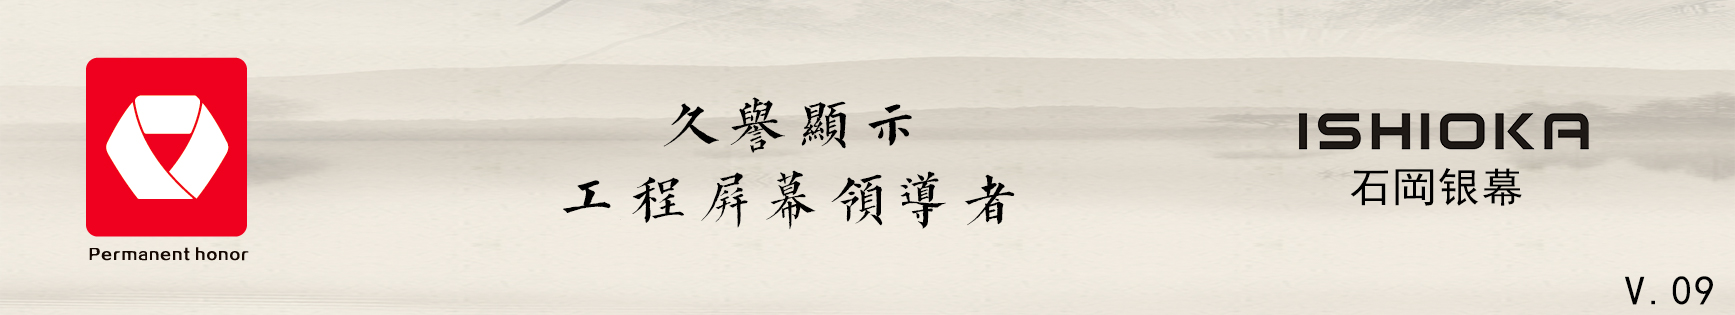 Permanent honor
久譽顯示
工程屏幕領導者
ISHIOKA
石岡银幕
V.09